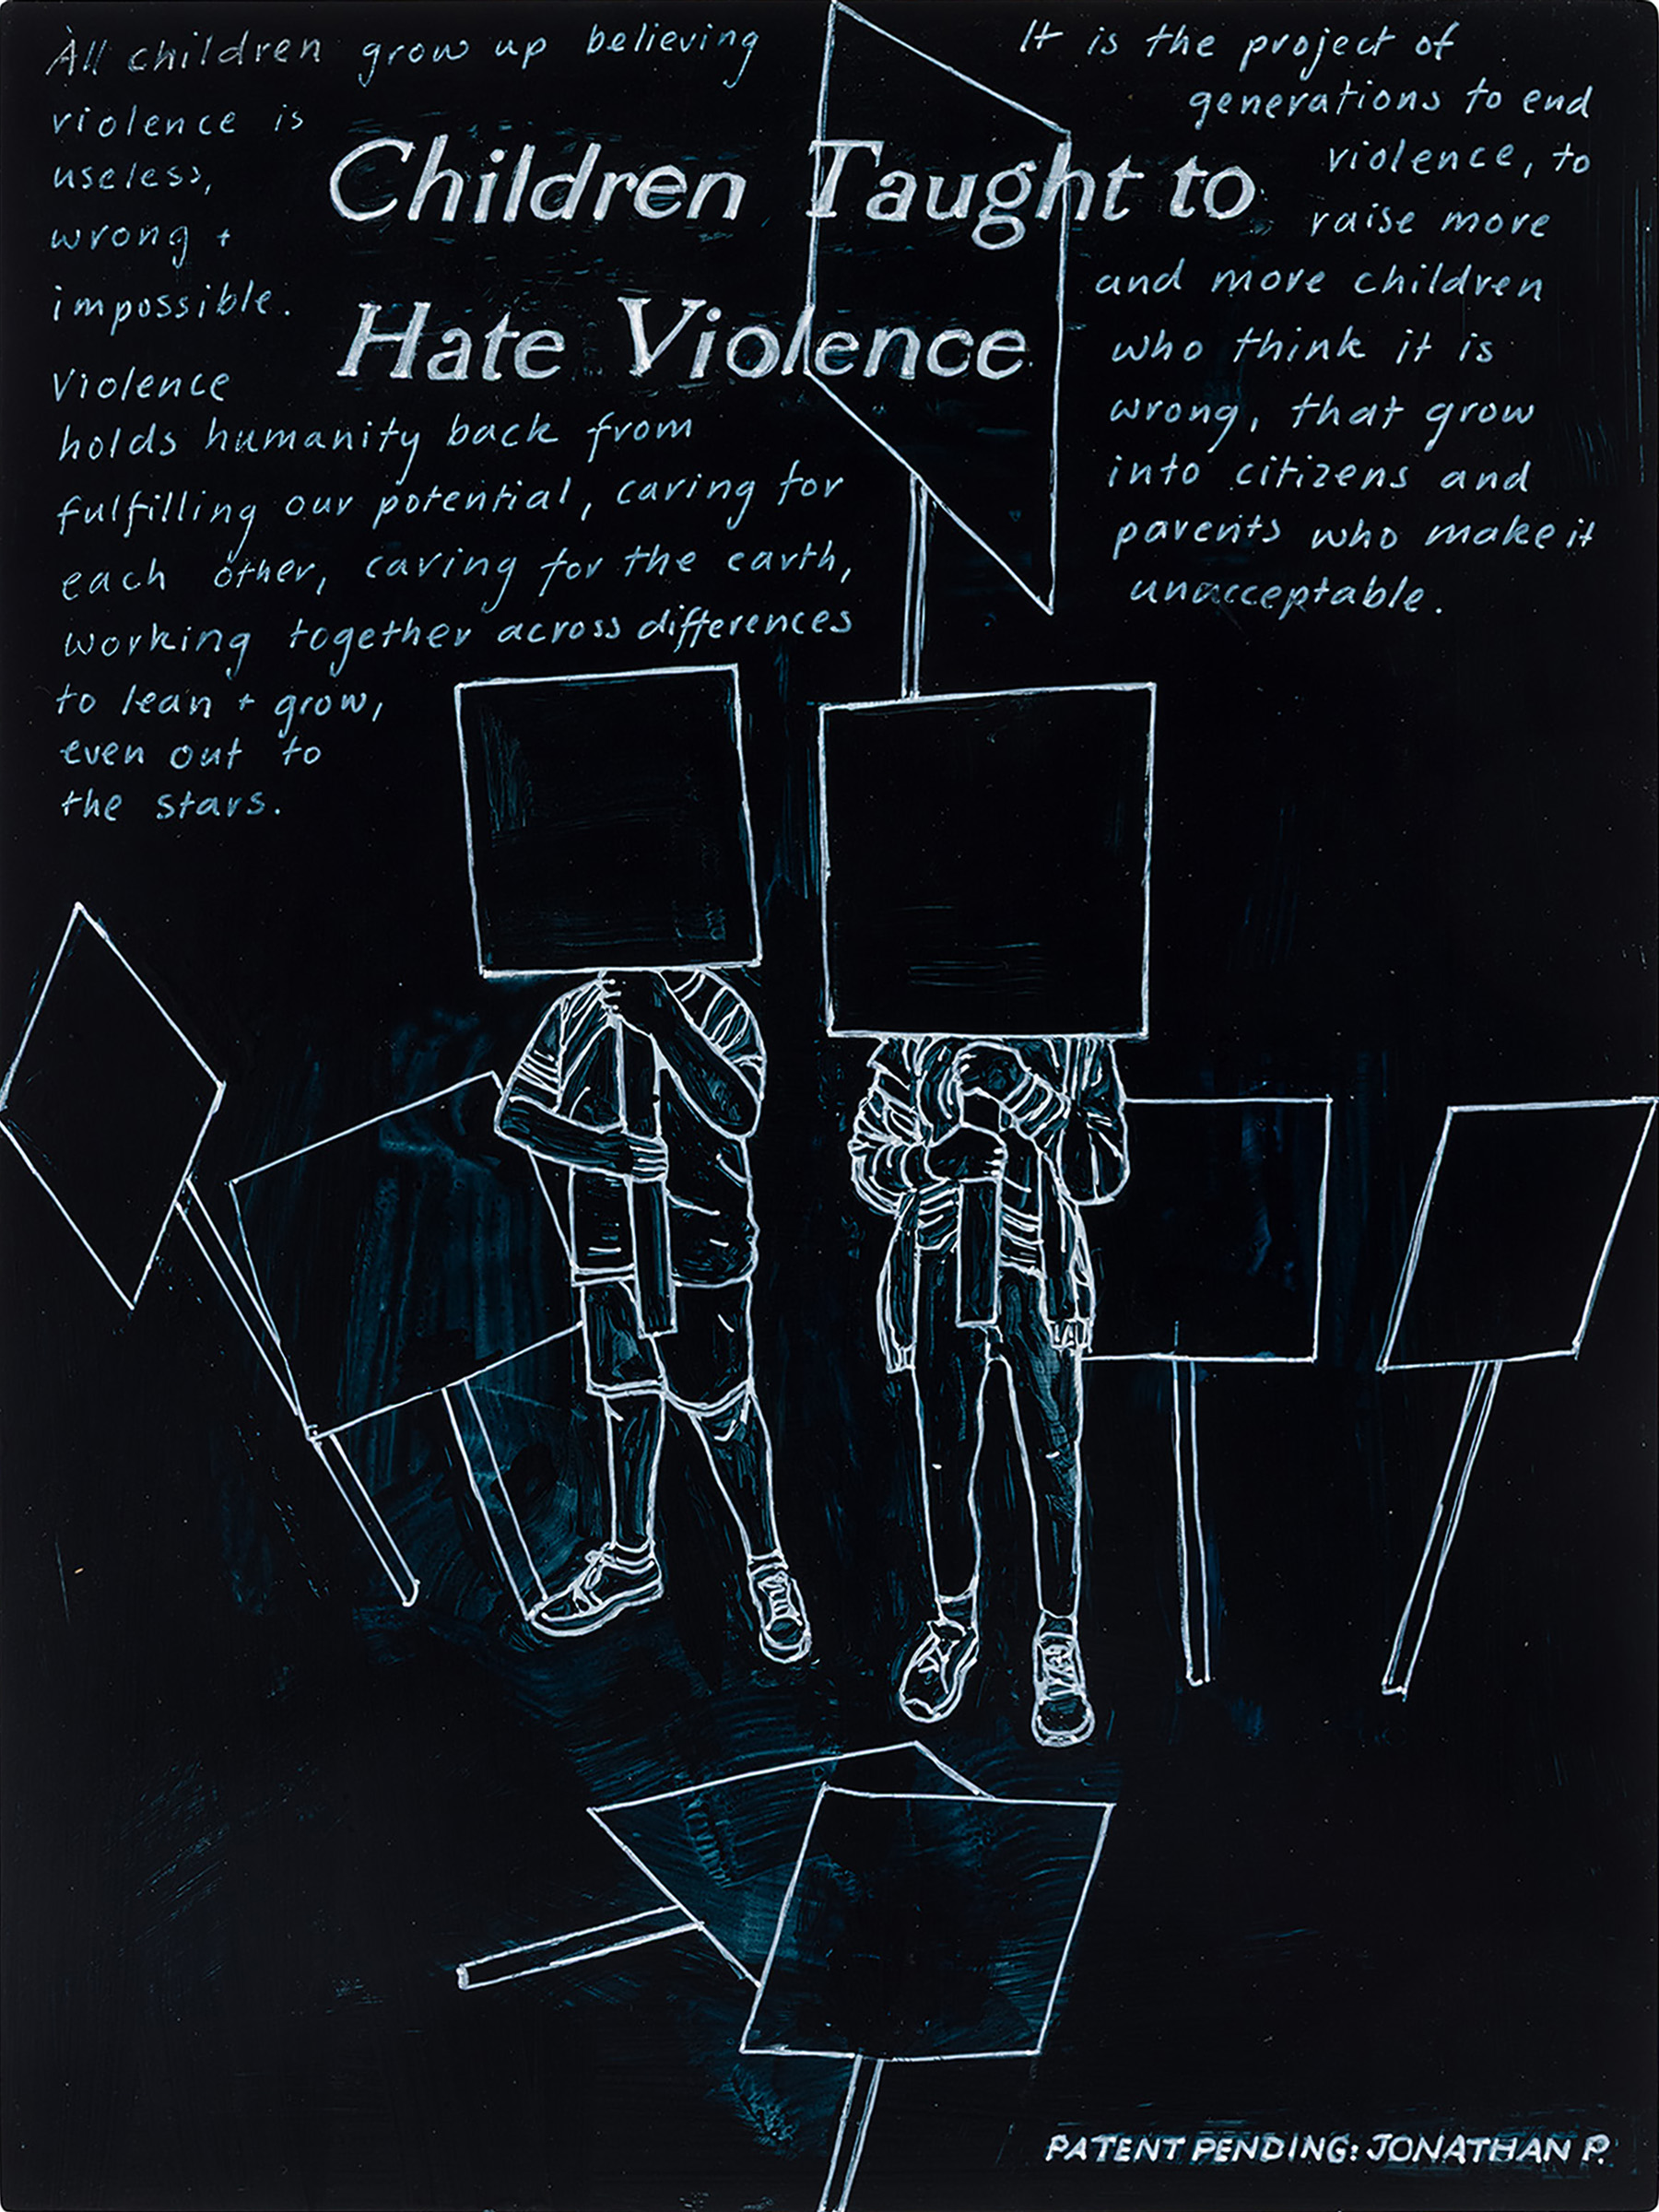 All children grow up believing
violence is
useless,
wrong +
impossible.
Violence
holds humanity back from
fulfilling our potential, caring for
each other, caring for the earth,
working together across differences
to lean + grow,
even out to
the stars.
Children Taught to
Hate Violence
It is the project of
generations to end
violence, to
raise more
and more children
who think it is
wrong, that grow
into citizens and
parents who make it
unacceptable.
PATENT PENDING: JONATHAN P.